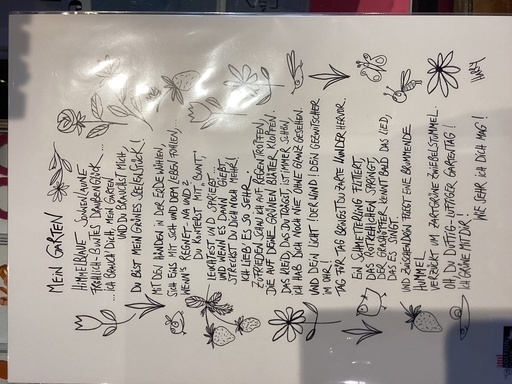 MEIN GARTEN
HIMMELBLAUE, SONNENLAUNE
FRÖHLICH-BUNTES DAUBENGLÜCK...
...ICH BRAUCH DICH, MEIN GARTEN
UND DU BRAUCHST MICH,
DU BIST MEIN GRÜNES GEGENSTÜCK!
MIT DEN HÄNDEN IN DER ERDE WÜHLEN,
SICH EINS MIT SICH UND DEM LEBEN FÜHLEN.
WENN'S REGNET: NA UND?
DU KONTERST MIT „BUNT",
EINFACH UND
UND WENN ES DANN GIEßT,
STRECKST DU DICH NOCH MEHR!
ICH LIEB' ES SO SEHR.
ZUFRIEDEN SCHAU ICH AUF REGENTROPFEN,
DIE AUF DEINE GRÜNEN BLÄTTER KLOPFEN.
DAS KLEID, DAS DU TRÄGST, IST IMMER SCHÖN,
ICH HAB DICH NOCH NIE OHNE GLANZ GESEHEN.
UND DEIN LICHT! DER WIND! DEIN GEZWITSCHER
IM OHR!
TAG FÜR TAG BRINGST DU ZARTE WUNDER HERVOR.
EIN SCHMETTERLING FLATTERT,
DAS ROTKEHLCHEN SPRINGT,
DER GRASHÜPFER KENNT BALD DAS LIED,
DAS ES SINGT.
UND ZWISCHENDRIN FLIEGT EINE BRUMMENDE
HUMMEL
VERZÜCKT IM ZARTGRÜNE ZWIEBELSTUMMEL.
OH, DU DUFTIG-LUFTIGER GARTENTAG!
ICH GRÜNE MIT DIR!
WIE SEHR ICH DICH MAG!